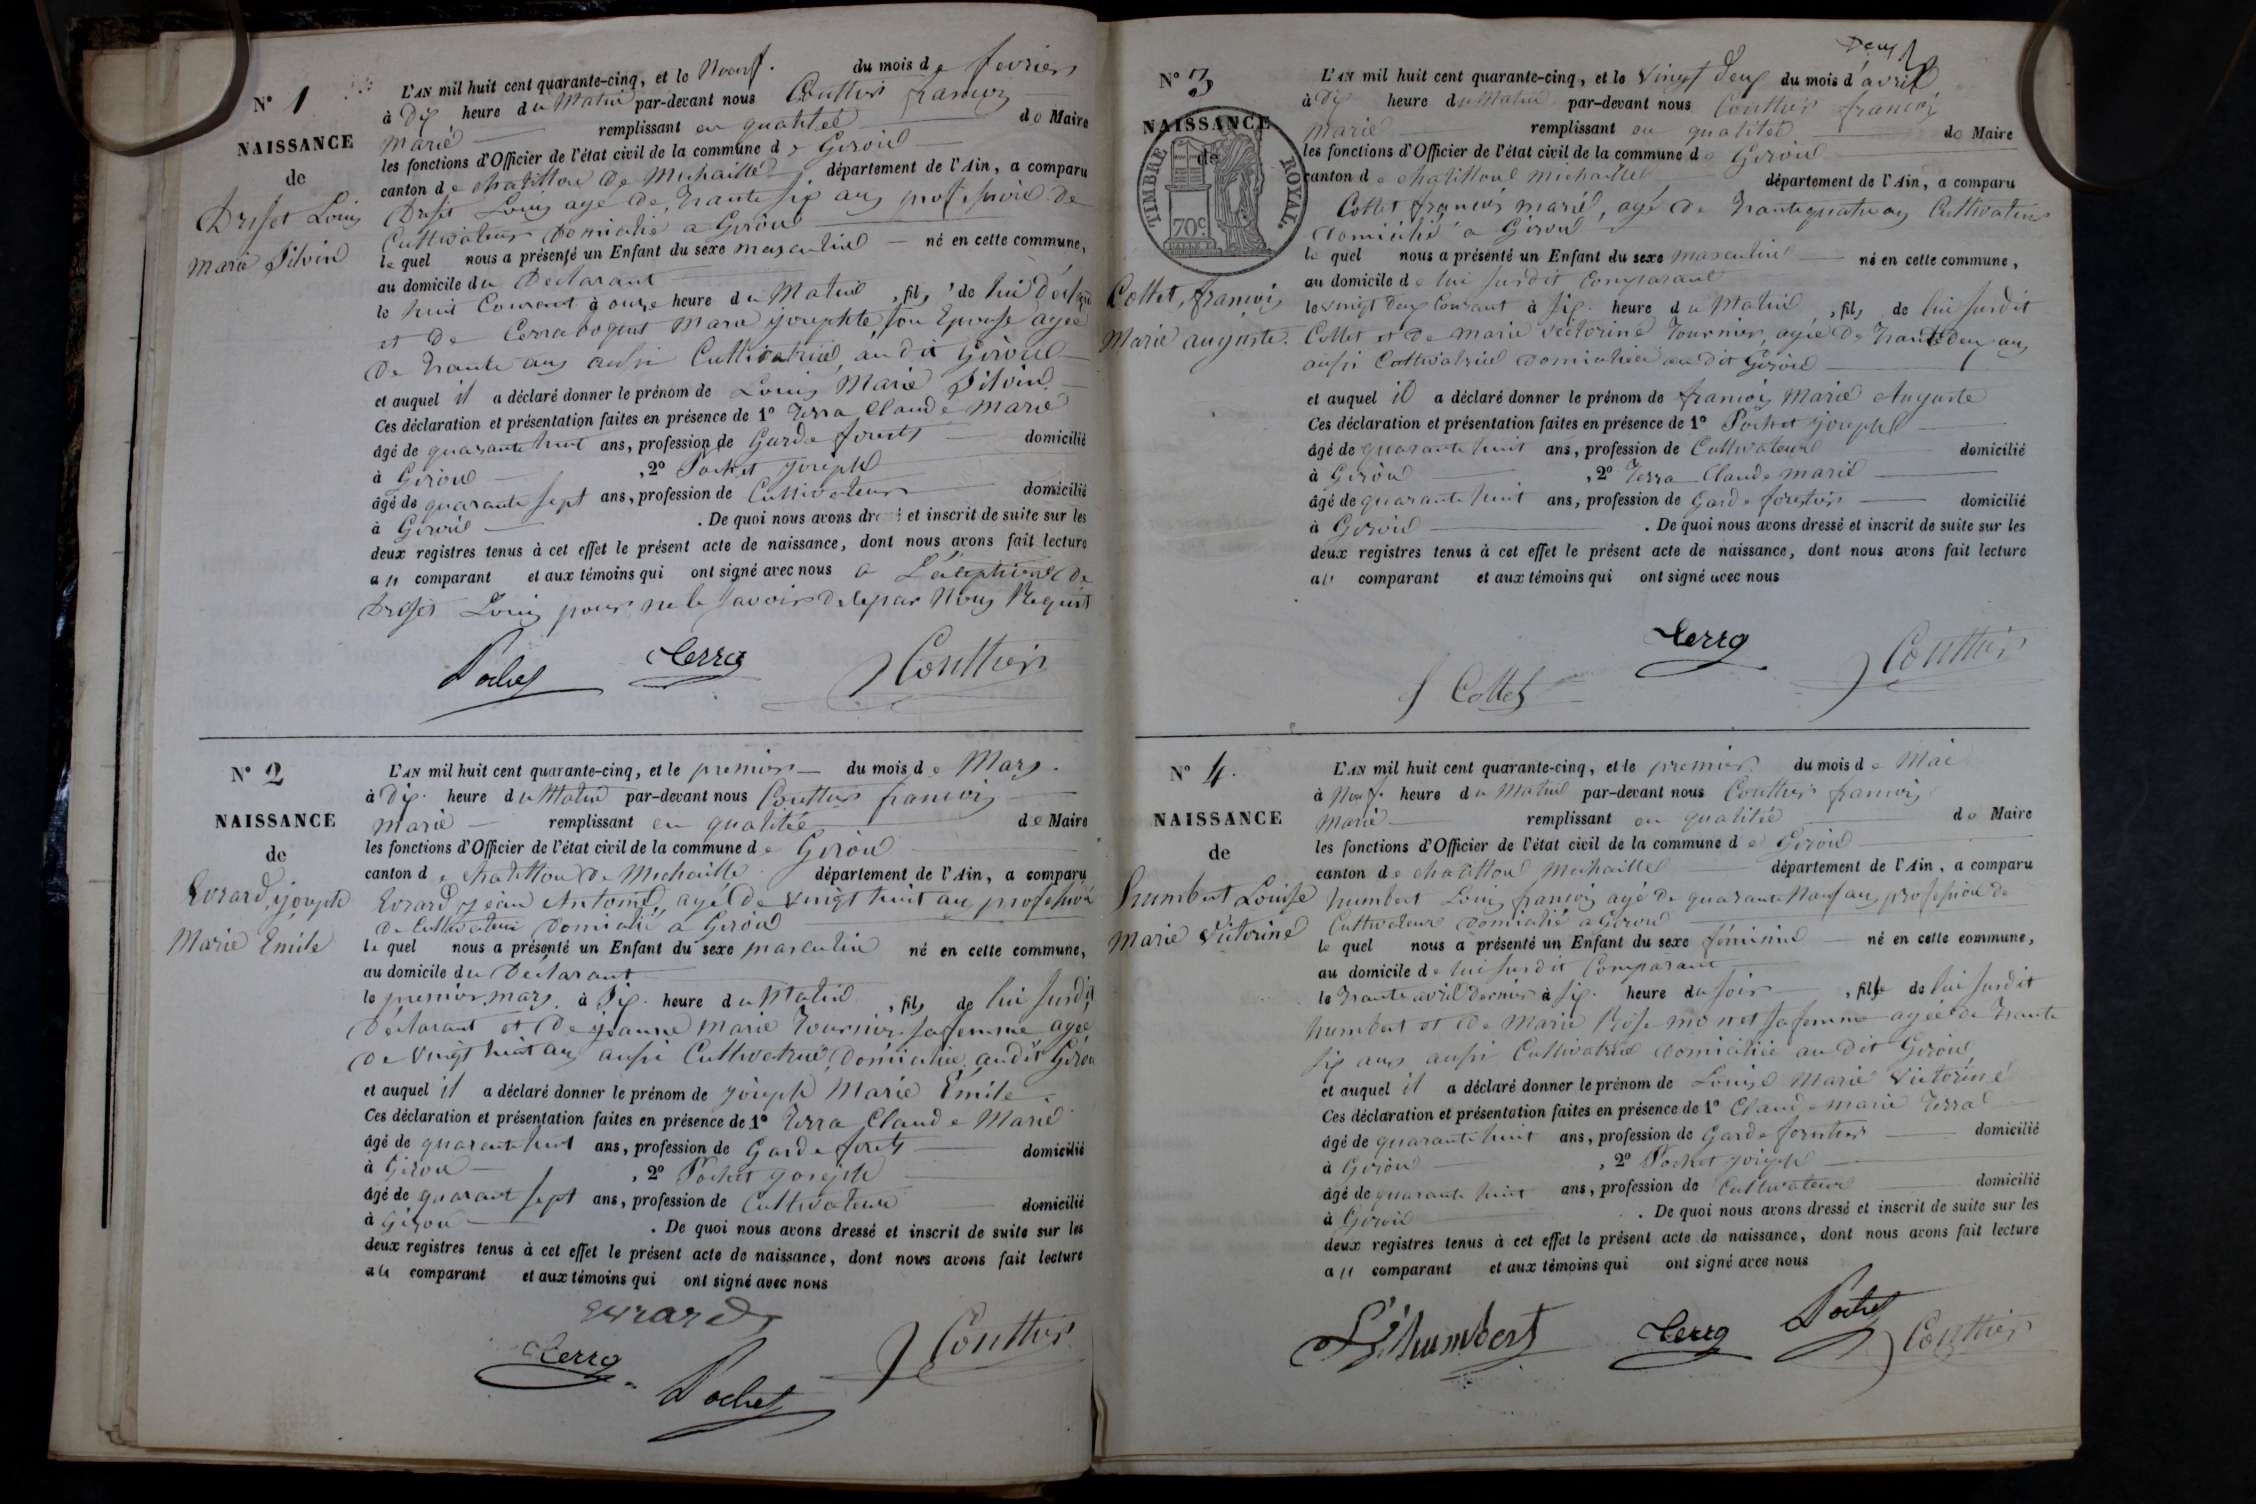 N° 1
NAISSANCE
de
Driset Louis
Marie Silvin
L'AN mil huit cent quarante-cinq, et le Neuf. du mois de fevrier
à Dix heure du Matin par-devant nous Couttier francois
Marie remplissant en qualité de Maire
les fonctions d'Officier de l'état civil de la commune de Giron
canton de chatillon De Michaille département de l'Ain, a comparu
Louis agé De trante six ans profession De
Cultivateur Domicilié a Giron
le quel nous a présenté un Enfant du sexe masculin né en cette commune,
au domicile du Déclarant
le huit Courant à onze heure du Matin, fils de lui
et De Marie josephte son Epouse agée
De trante ans aussi Cultivatrice au dit Giron
et auquel il a déclaré donner le prénom de Louis Marie Silvin
Ces déclaration et présentation faites en présence de 1° Terra Claude Marie
âgé de quarante huit ans, profession de Garde forets domicilié
à Giron, 2° Pochet joseph
âgé de quarante sept ans, profession de Cultivateur domicilié
à Giron. De quoi nous avons dressé et inscrit de suite sur les
deux registres tenus à cet effet le présent acte de naissance, dont nous avons fait lecture
au comparant et aux témoins qui ont signé avec nous a L'éxeption De
Louis pour ne le savoir De le par Nous Requit
Pochet Terra Couttier
N° 2
NAISSANCE
de
Evrard, joseph
Marie Emile
L'AN mil huit cent quarante-cinq, et le premier du mois de Mars.
à Dix heure du Matin par-devant nous Couttier francois
Marie remplissant en qualitée de Maire
les fonctions d'Officier de l'état civil de la commune de Giron
canton de chatillon De Michaille département de l'Ain, a comparu
Evrard jean Antoine, agé De vingt huit ans profession
De Cultivateur Domicilié a Giron
le quel nous a présenté un Enfant du sexe masculin né en cette commune,
au domicile du Déclarant
le premier mars à Six heure du Matin, fils de lui susdit
Déclarant et De jeanne marie Tournier sa femme agée
De vingt huit ans aussi Cultivatrice, Domiciliée au dit Giron
et auquel il a déclaré donner le prénom de joseph Marie Émile
Ces déclaration et présentation faites en présence de 1° Terra Claude Marie
âgé de quarante huit ans, profession de Garde forets domicilié
à Giron, 2° Pochet joseph
âgé de quarant sept ans, profession de Cultivateur domicilié
à Giron. De quoi nous avons dressé et inscrit de suite sur les
deux registres tenus à cet effet le présent acte de naissance, dont nous avons fait lecture
au comparant et aux témoins qui ont signé avec nous
evrard
Terra Pochet Couttier
Deux
N° 3
NAISSANCE
de
TIMBRE ROYAL.
70c
Collet, francois
Marie auguste.
L'AN mil huit cent quarante-cinq, et le vingt deux du mois d'avril
à Dix heure du Matin par-devant nous Couttier francois
Marie remplissant en qualité de Maire
les fonctions d'Officier de l'état civil de la commune de Giron
canton de chatillon michaille département de l'Ain, a comparu
Collet francois marie, agé De trante quatre ans Cultivateur
Domicilié a Giron
le quel nous a présenté un Enfant du sexe masculin né en cette commune,
au domicile de lui susdit comparant
le vingt deux Courant à Six heure du Matin, fils de lui susdit
Collet et De marie victorine Tournier, agée De trante deux ans
aussi Cultivatrice Domiciliée au dit Giron
et auquel il a déclaré donner le prénom de francois Marie Auguste
Ces déclaration et présentation faites en présence de 1° Pochet joseph
âgé de quarante huit ans, profession de Cultivateur domicilié
à Giron, 2° Terra Claude marie
âgé de quarante huit ans, profession de Garde forestier domicilié
à Giron. De quoi nous avons dressé et inscrit de suite sur les
deux registres tenus à cet effet le présent acte de naissance, dont nous avons fait lecture
au comparant et aux témoins qui ont signé avec nous
f Collet Terra Couttier
N° 4.
NAISSANCE
de
humbert Louise
Marie Victorine
L'AN mil huit cent quarante-cinq, et le premier du mois de Mai
à Neuf heure du Matin par-devant nous Couttier francois
Marie remplissant en qualitée de Maire
les fonctions d'Officier de l'état civil de la commune de Giron
canton de chatillon Michaille département de l'Ain, a comparu
humbert Louis francois agé De quarante Neuf ans profession De
Cultivateur Domicilié a Giron
le quel nous a présenté un Enfant du sexe féminin né en cette commune,
au domicile de lui susdit Comparant
le trante avril Dernier à six heure du soir, fille de lui susdit
humbert et De Marie Rose monet sa femme agée De trante
six ans aussi Cultivatrice Domiciliée au dit Giron
et auquel il a déclaré donner le prénom de Louise Marie Victorine
Ces déclaration et présentation faites en présence de 1° Claude marie Terra
âgé de quarante huit ans, profession de Garde forestier domicilié
à Giron, 2° Pochet joseph
âgé de quarante huit ans, profession de Cultivateur domicilié
à Giron. De quoi nous avons dressé et inscrit de suite sur les
deux registres tenus à cet effet le présent acte de naissance, dont nous avons fait lecture
au comparant et aux témoins qui ont signé avec nous
humbert Terra Pochet Couttier